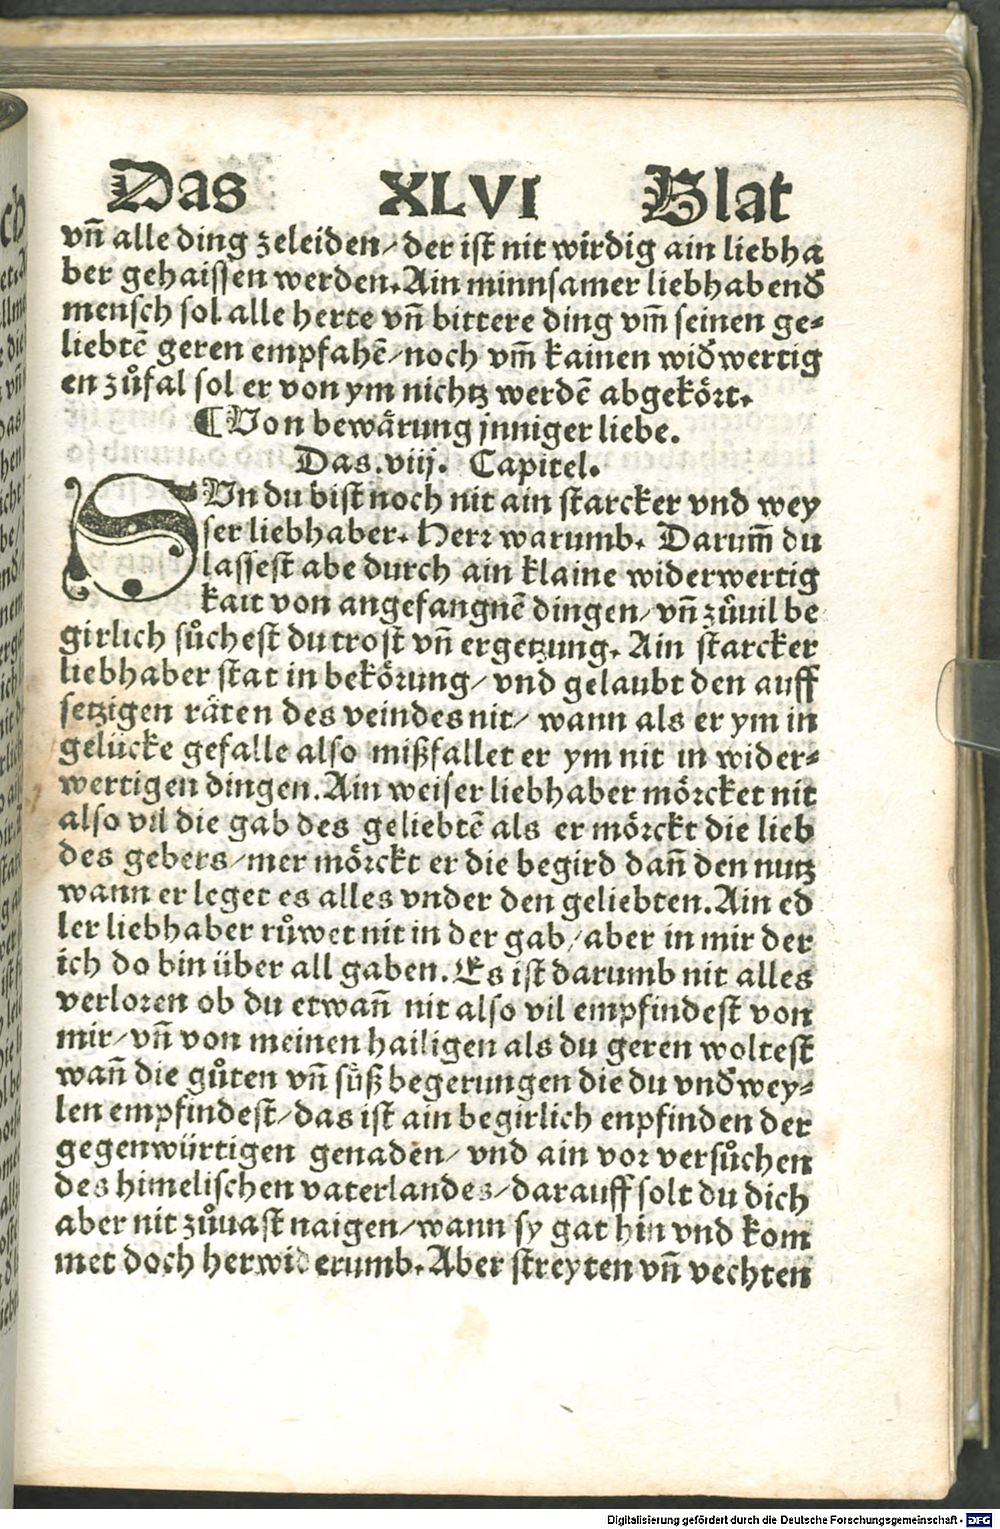 Das XLVI Blat
vñ alle ding zeleiden/ der ist nit wirdig ain liebha
ber gehaissen werden. Ain minnsamer liebhabend̕
mensch sol alle herte vñ bittere ding vm̃ seinen ge⸗
liebtẽ geren empfahẽ/ noch vm̃ kainen wid̕wertig
en zůfal sol er von ym nichtz werdẽ abgekört.
¶ Von bewärung jnniger liebe.
Das .viij. Capitel.
SVn du bist noch nit ain starcker vnd wey
ser liebhaber. Herr warumb. Darum̃ du
lassest abe durch ain klaine widerwertig
kait von angefangnẽ dingen/ vñ zůuil be
girlich sůchest du trost vñ ergetzung. Ain starcker
liebhaber stat in bekörung/ vnd gelaubt den auff
setzigen räten des veindes nit/ wann als er ym in
gelücke gefalle also mißfallet er ym nit in wider⸗
wertigen dingen. Ain weiser liebhaber mörcket nit
also vil die gab des geliebtẽ als er mörckt die lieb
des gebers/ mer mörckt er die begird dañ den nutz
wann er leget es alles vnder den geliebten. Ain ed
ler liebhaber růwet nit in der gab/ aber in mir der
ich do bin über all gaben. Es ist darumb nit alles
verloren ob du etwañ nit also vil empfindest von
mir/ vñ von meinen hailigen als du geren woltest
wañ die gůten vñ süß begerungen die du vnd̕ wey⸗
len empfindest/ das ist ain begirlich enpfinden der
gegenwürtigen genaden/ vnd ain vor versůchen
des himelischen vaterlandes/ darauff solt du dich
aber nit zůuast naigen/ wann sy gat hin vnd kom
met doch herwiderumb. Aber streyten vñ vechten
Digitalisierung gefördert durch die Deutsche Forschungsgemeinschaft - DFG